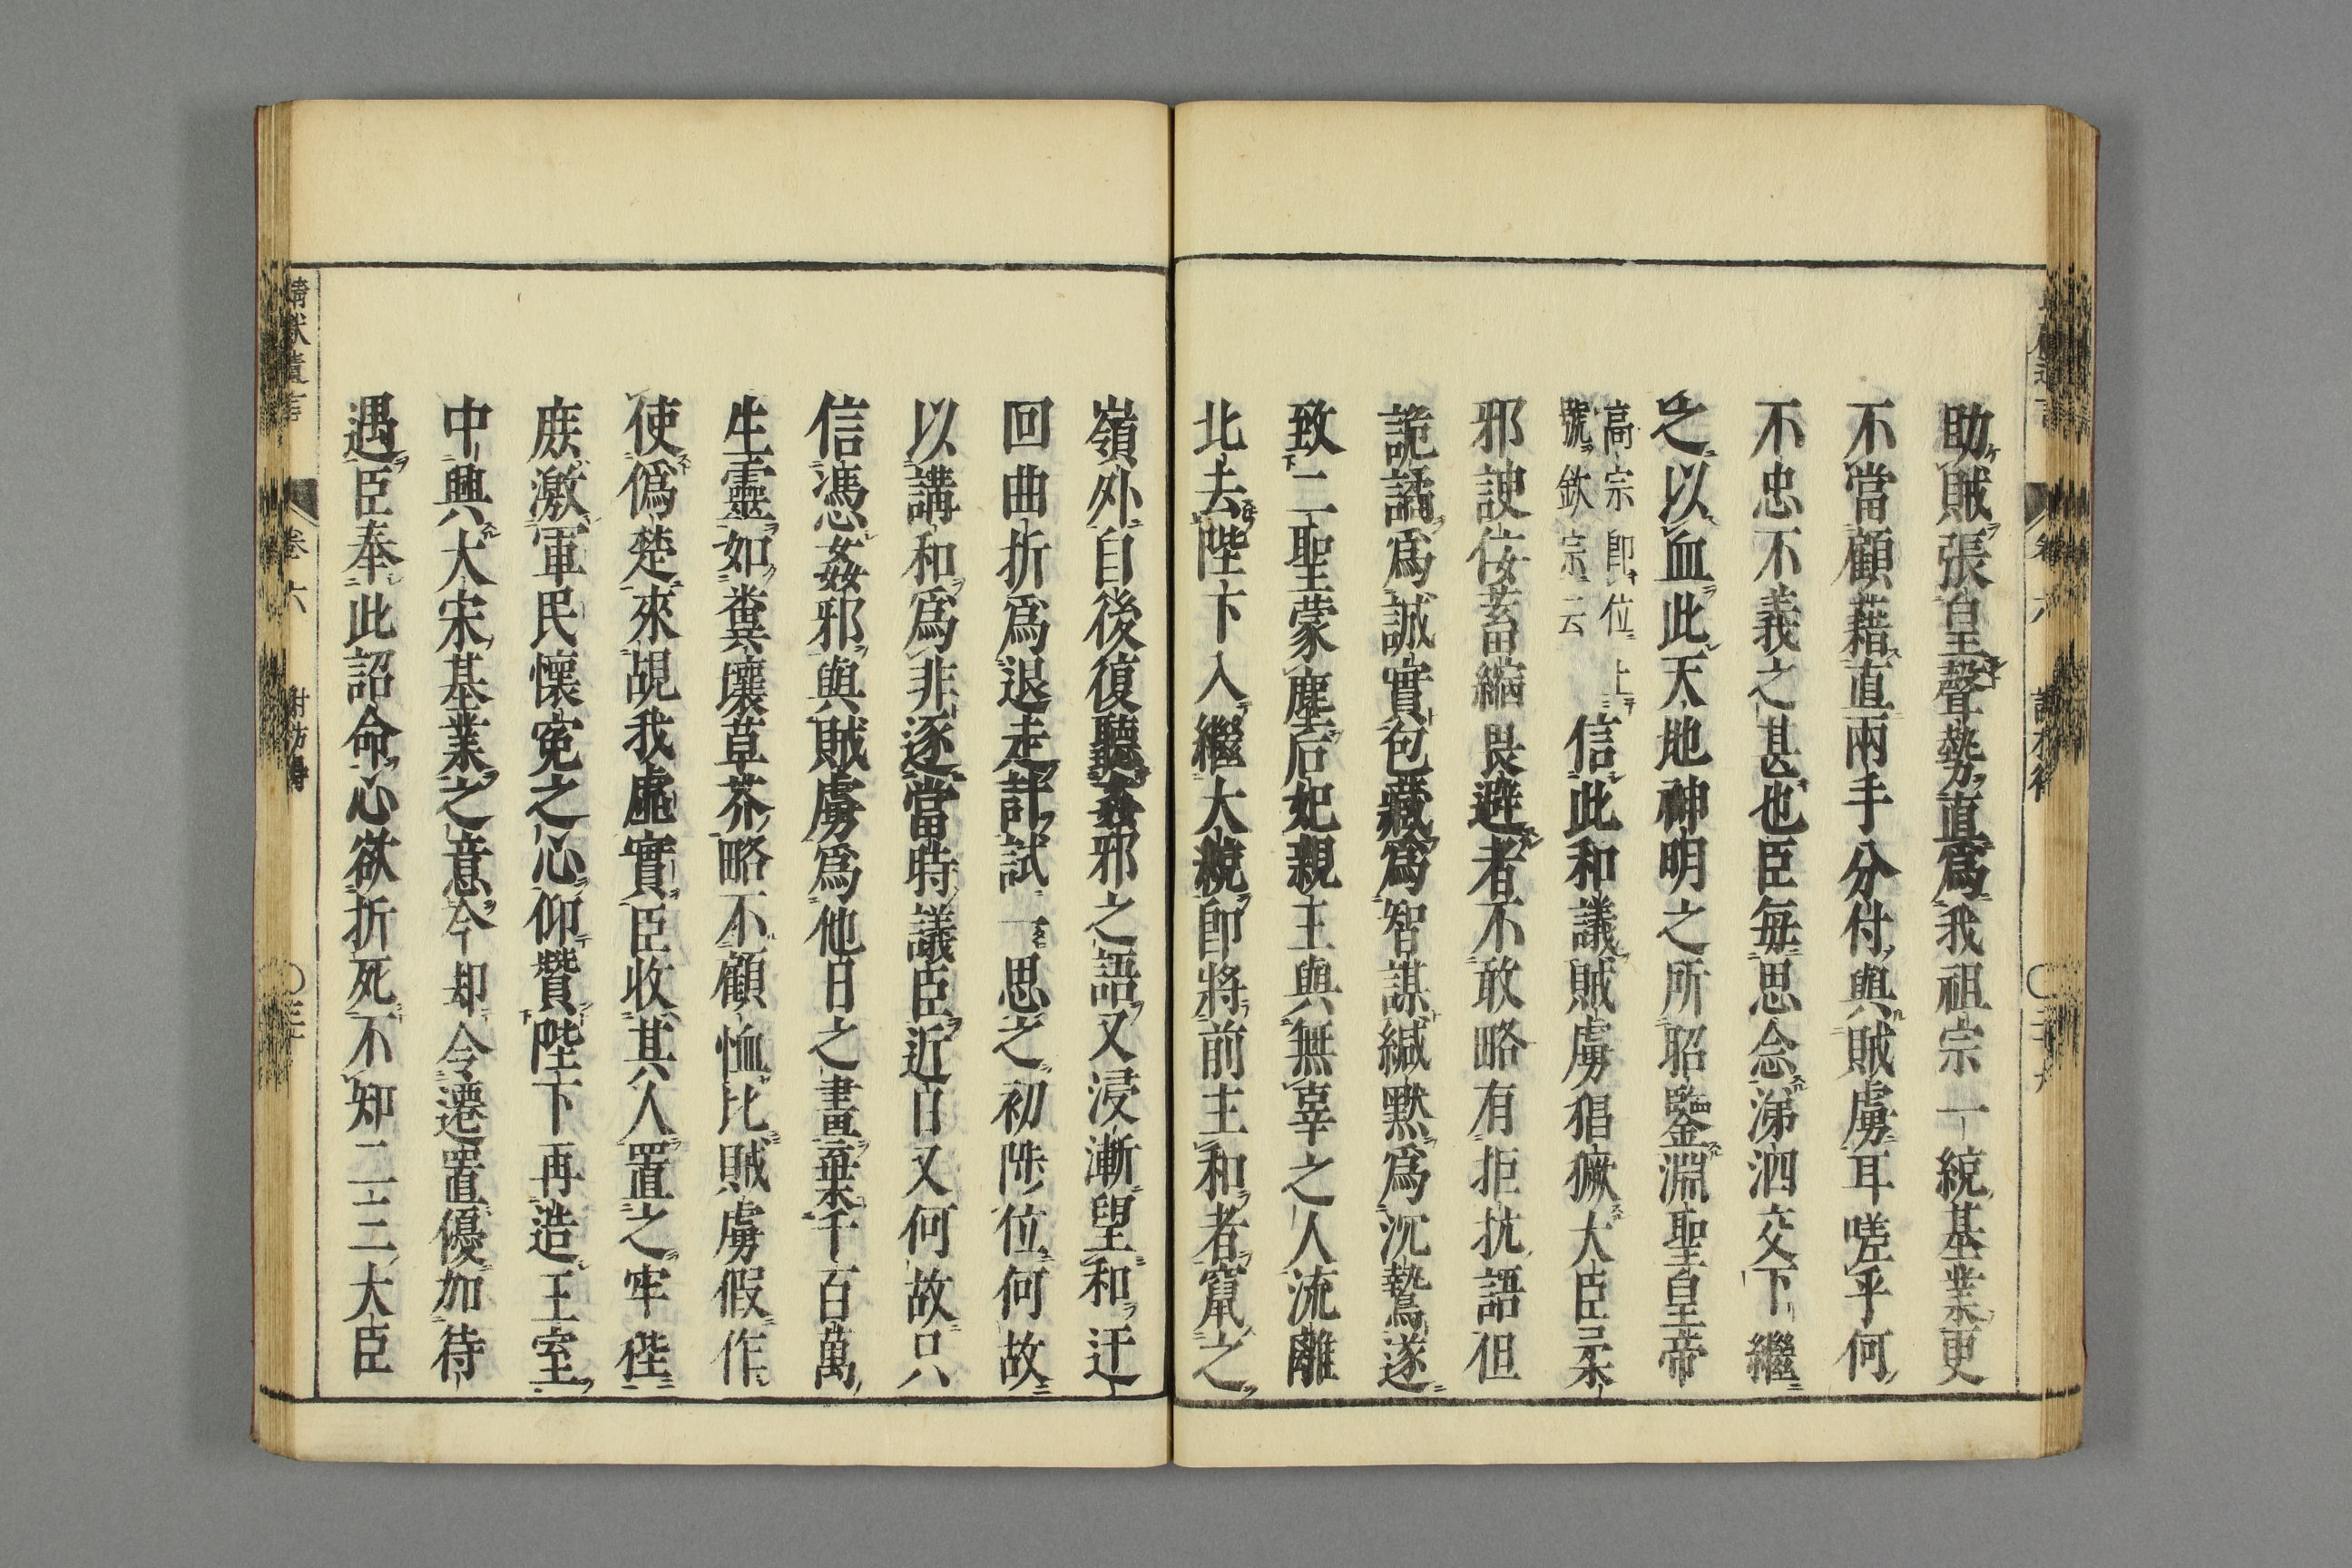 助賊張皇聲勢直爲我祖宗一統基業更
不當顧藉直兩手分付與賊虜耳嗟乎何
不忠不義之甚也臣每思念涕泗交下繼
之以血此天地神明之所昭鑒淵聖皇帝
高宗即位上
號欽宗云
信此和議賊虜猖獗大臣柔
邪諛佞蓄縮畏避者不敢略有拒抗語但
詭譎爲誠實包藏爲智謀緘默爲沉鷙遂
致二聖蒙塵后妃親王與無辜之人流離
北去陛下入繼大統即將前主和者竄之
嶺外自後復聽姦邪之語又浸漸望和迂
回曲折爲退走計試一思之初陟位何故
以講和爲非逐當時議臣近日又何故只
信憑姦邪與賊虜爲他日之畫棄千百萬
生靈如糞壤草芥略不顧恤比賊虜假作
使僞楚來覘我虛實臣收其人置之牢狴
庶激軍民懷冤之心仰贊陛下再造王室
中興大宋基業之意今却令遷置優加待
遇臣奉此詔命心欲折死不知二三大臣
靖獻遺言
卷六
謝枋得